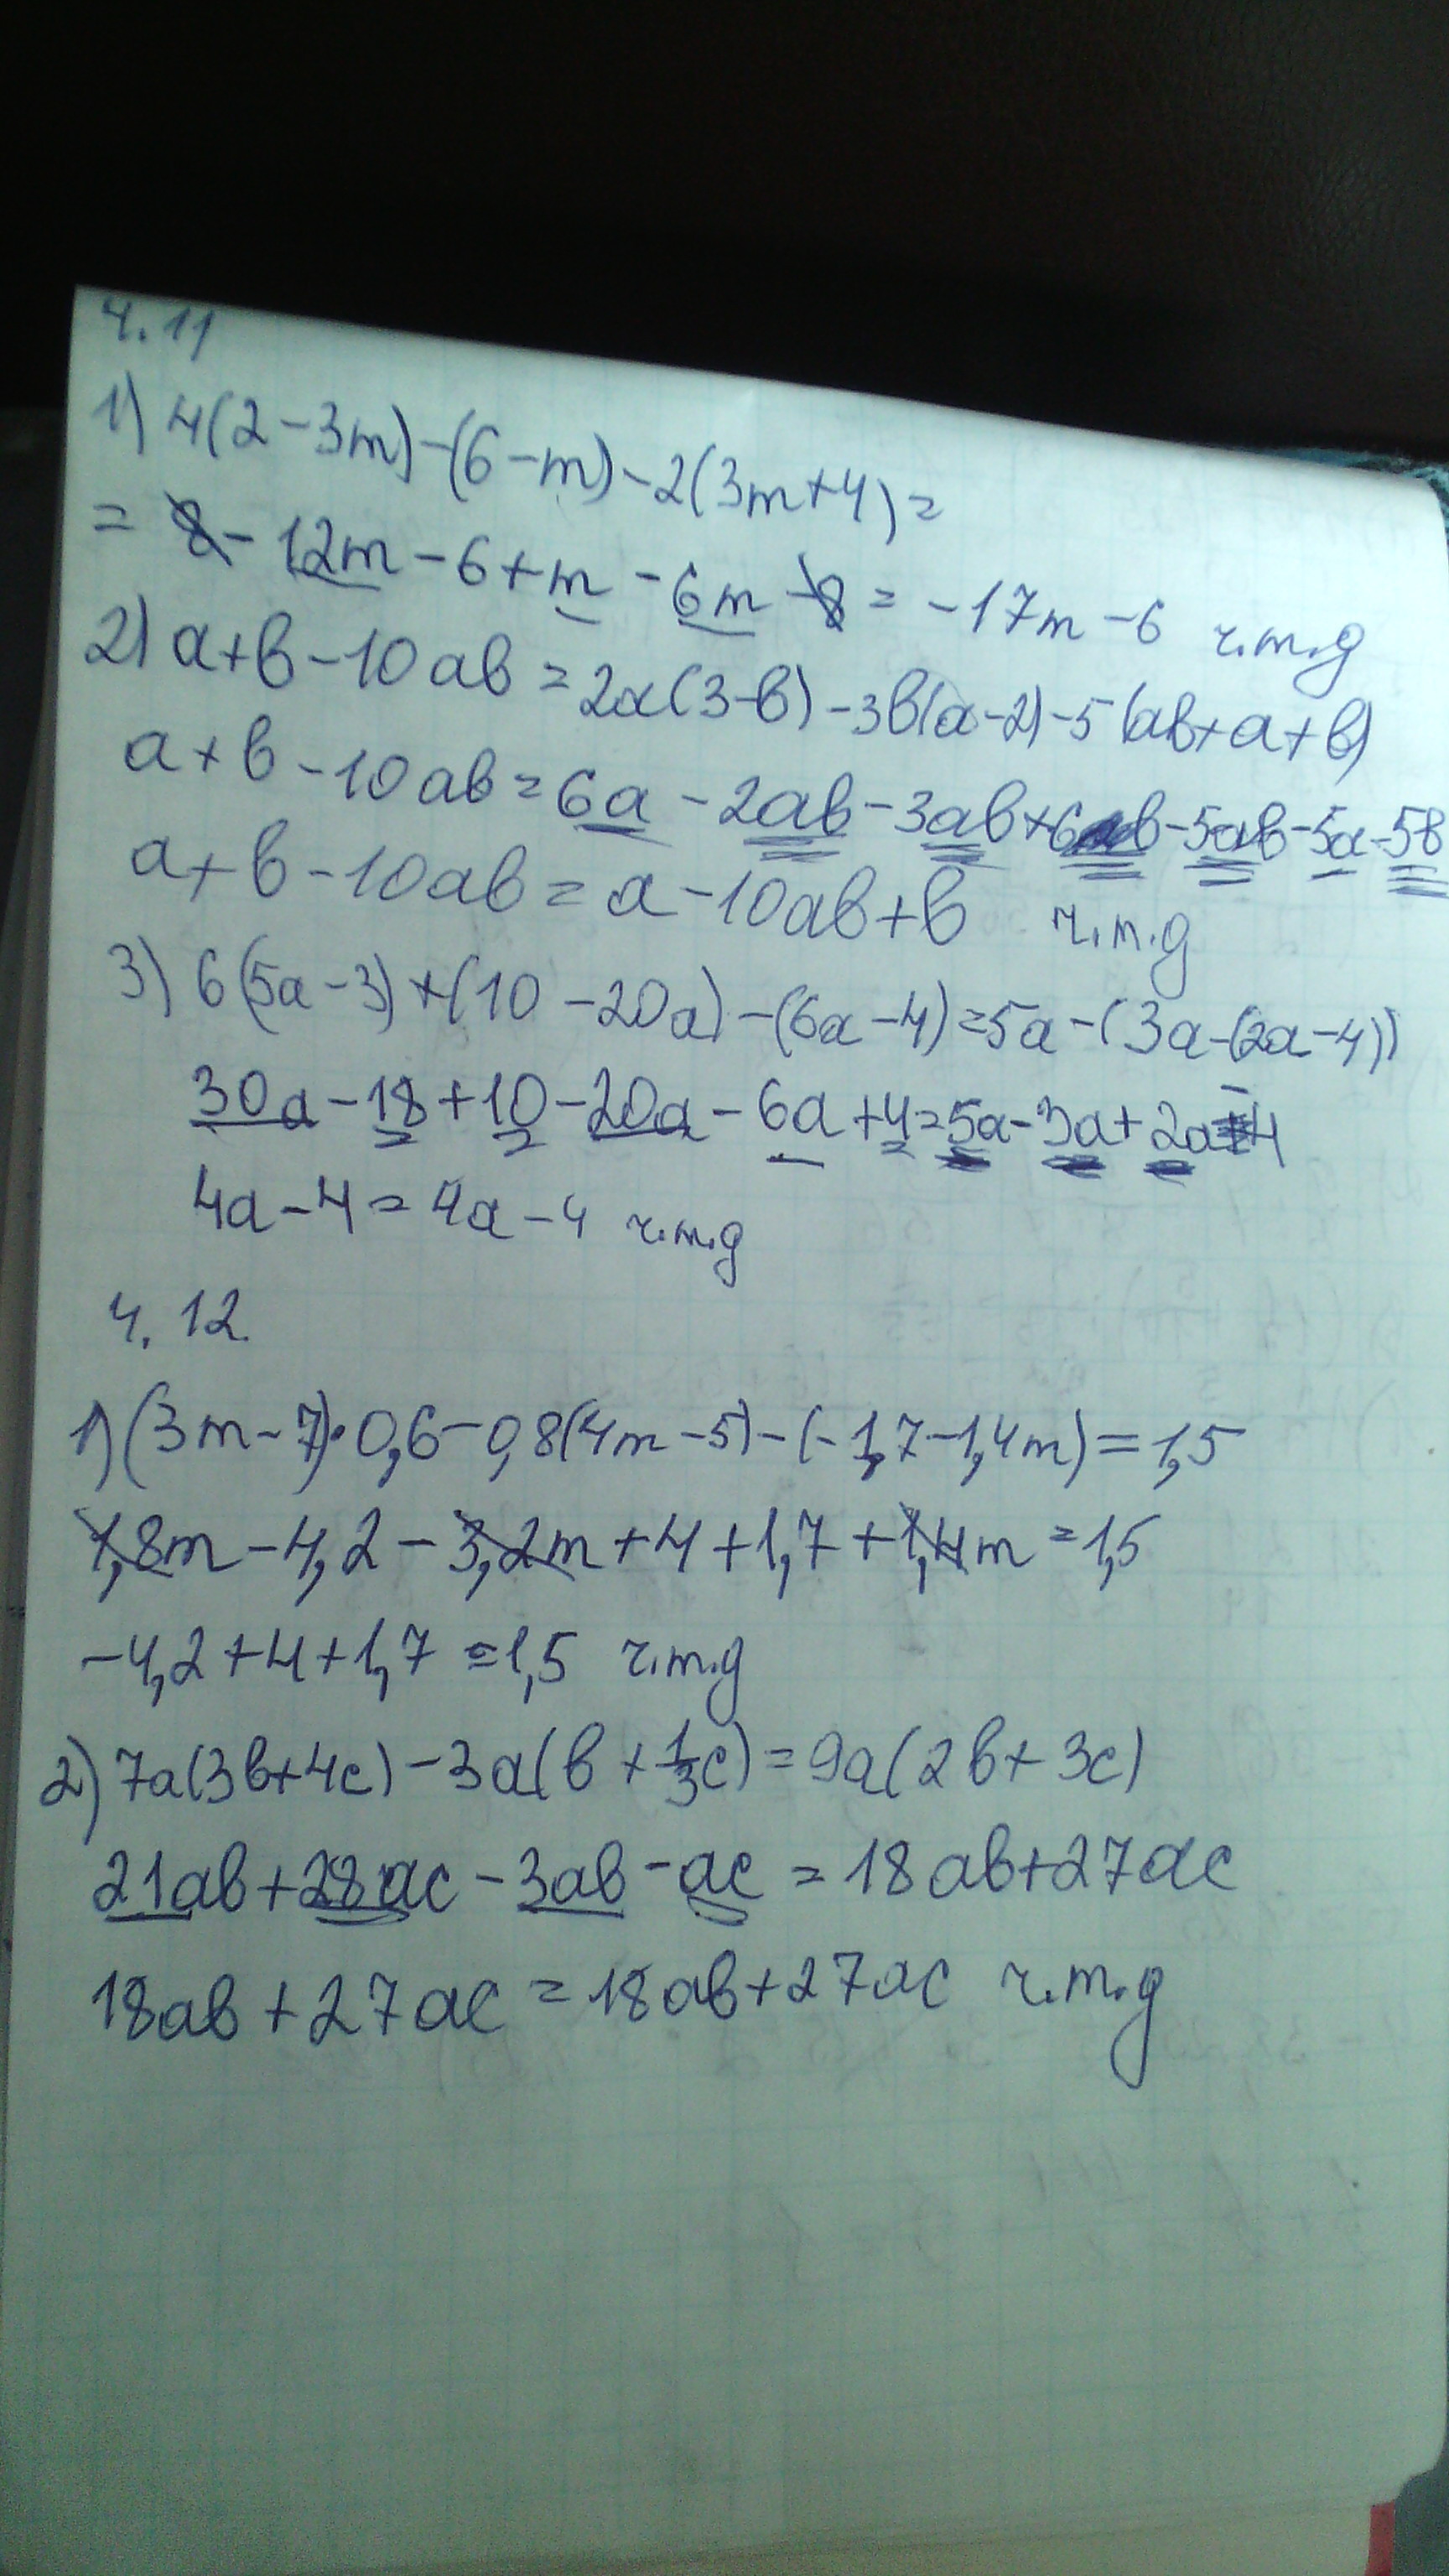 4.11
1) 4(2-3m)-(6-m)-2(3m+4)=
= 8-12m-6+m-6m-8 = -17m-6 ч.т.д
2) a+b-10ab=2a(3-b)-3b(a-2)-5(ab+a+b)
a+b-10ab=6a-2ab-3ab+6b-5ab-5a-5b
a+b-10ab=a-10ab+b ч.т.д
3) 6(5a-3)+(10-20a)-(6a-4)=5a-(3a-(2a-4))
30a-18+10-20a-6a+4=5a-3a+2a-4
4a-4=4a-4 ч.т.д
4.12.
1) (3m-7)·0,6-0,8(4m-5)-(-1,7-1,4m)=1,5
1,8m-4,2-3,2m+4+1,7+1,4m=1,5
-4,2+4+1,7=1,5 ч.т.д
2) 7a(3b+4c)-3a(b+1/3c)=9a(2b+3c)
21ab+28ac-3ab-ac=18ab+27ac
18ab+27ac=18ab+27ac ч.т.д